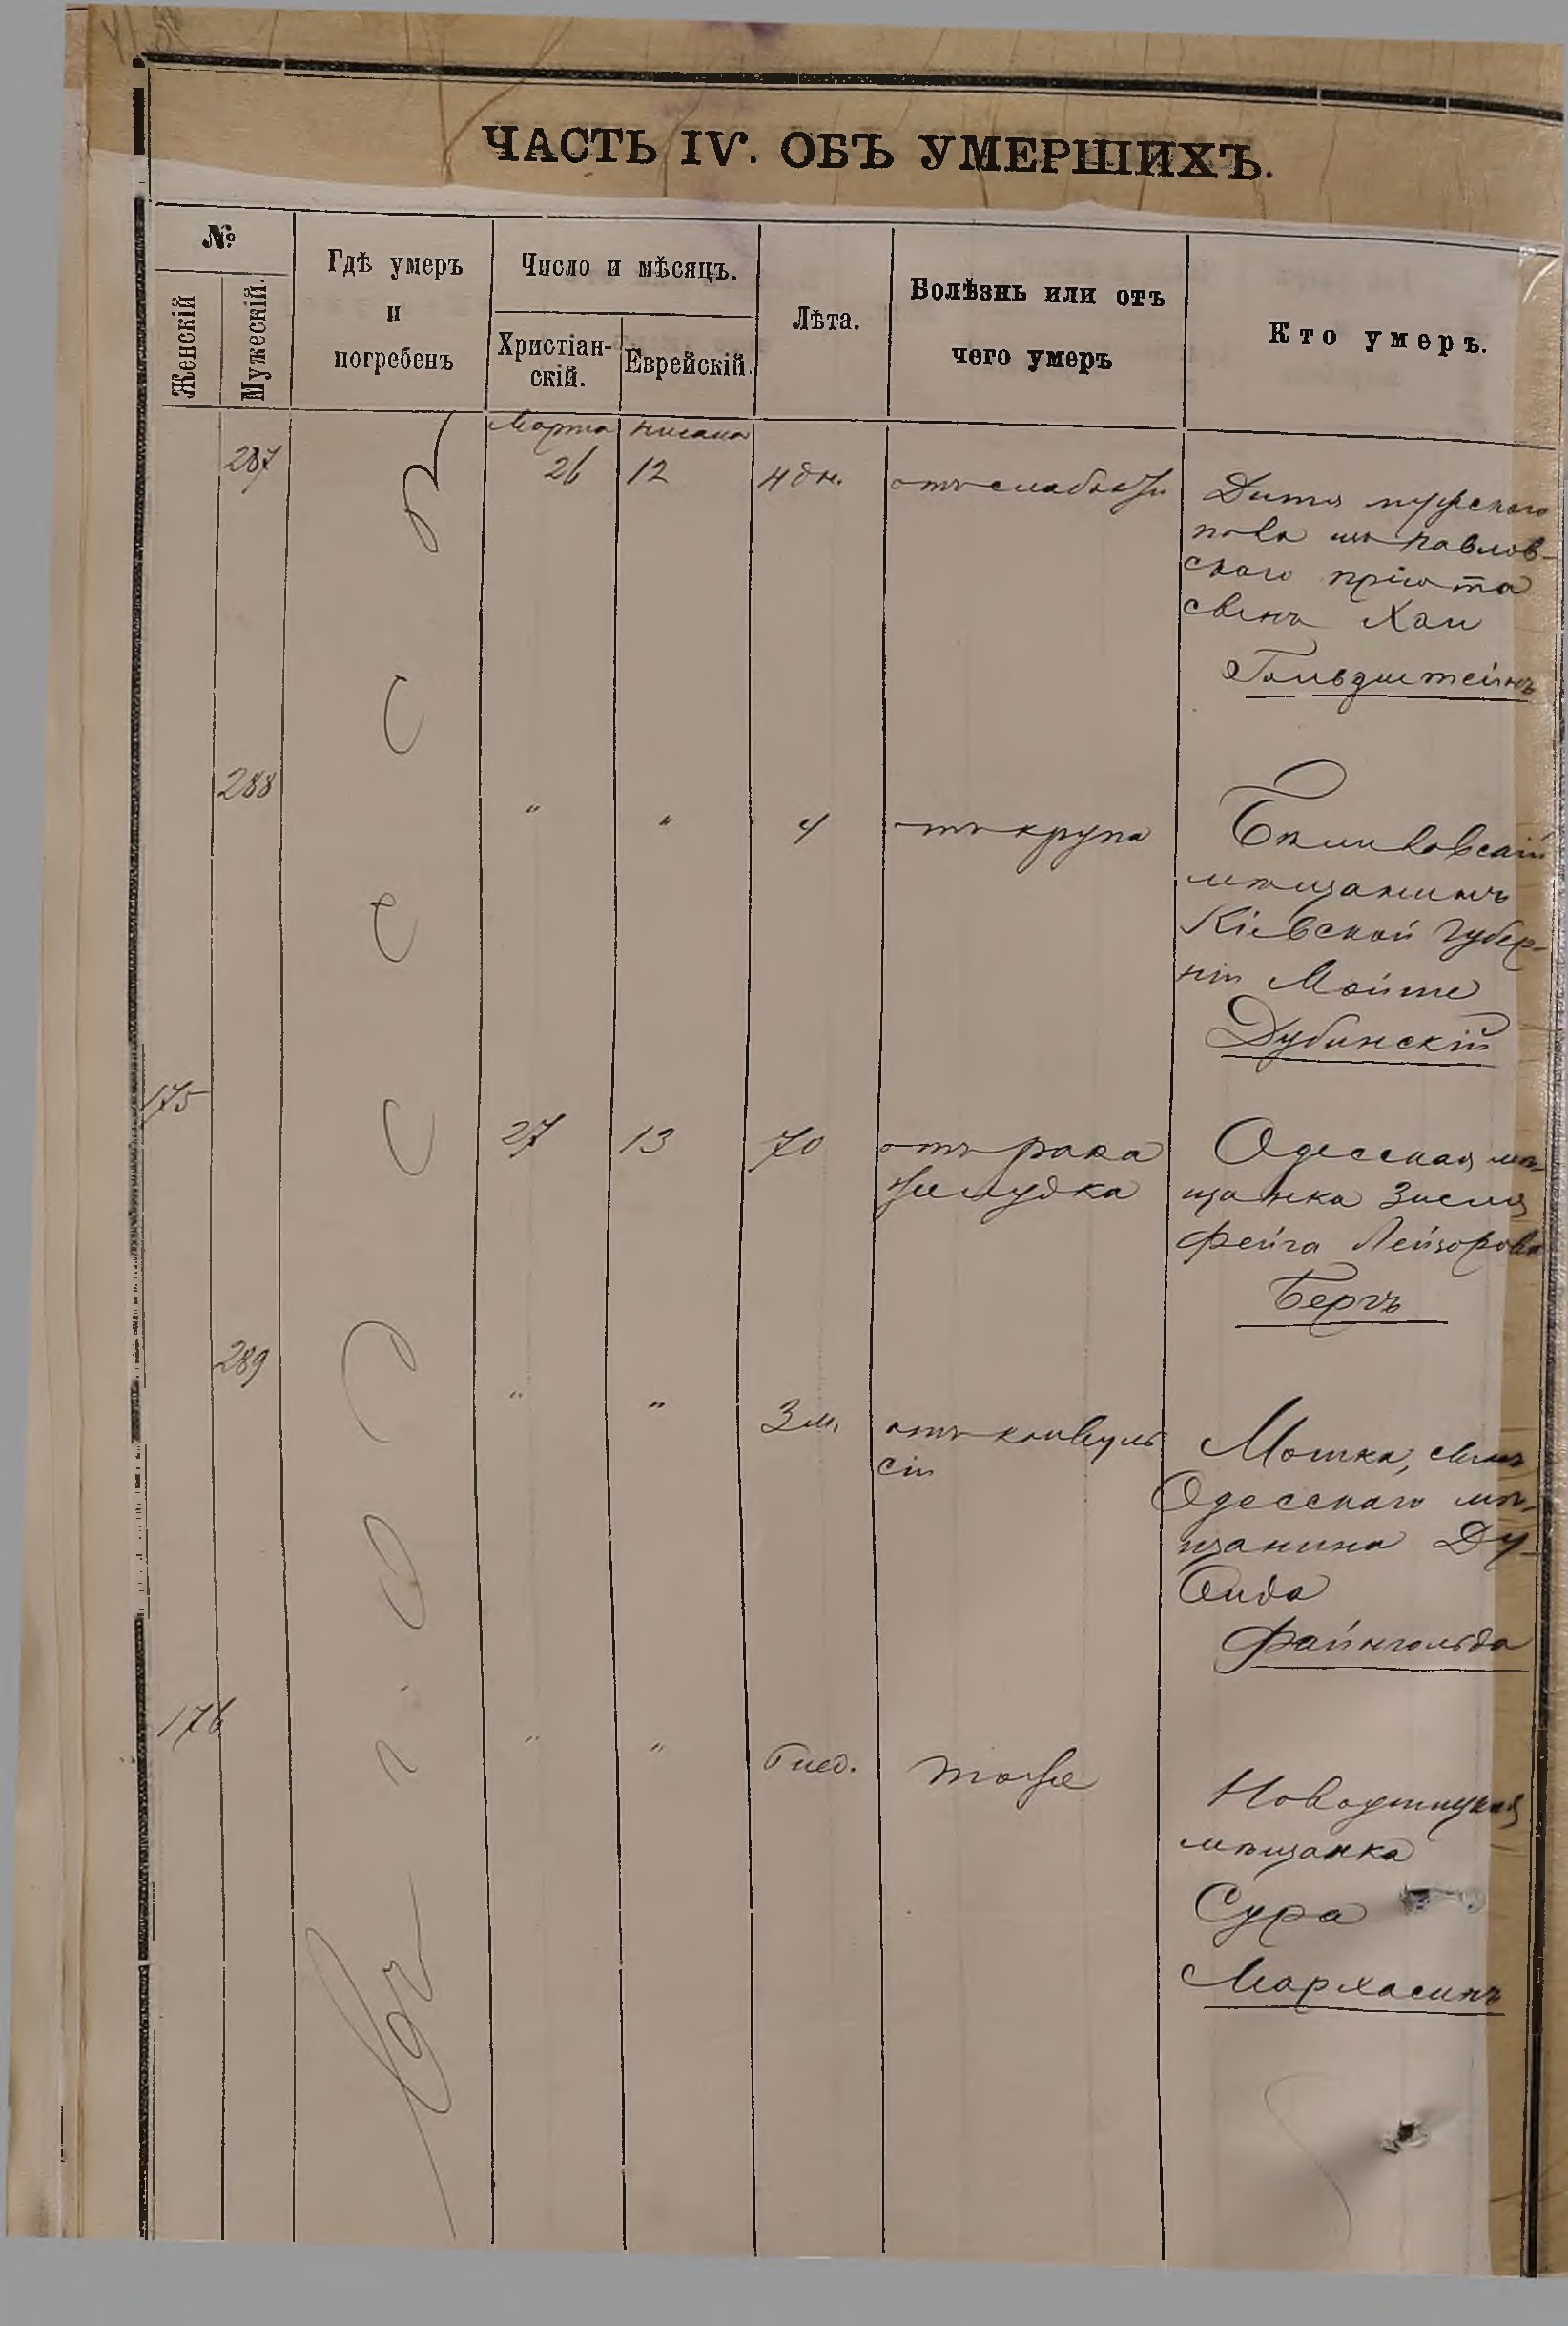 ЧАСТЬ IV. ОБЪ УМЕРШИХЪ.
№
Женскій
Мужескій.
Гдѣ умеръ
и
погребенъ
Число и мѣсяцъ.
Христіан-
скій.
Еврейскій.
Лѣта.
Болѣзнь или отъ
чего умеръ
Кто умеръ.
Марта нисана
287 26 12 4 дн. отъ слабости Дитя мужского
пола изъ павлов-
скаго пріюта
Хаи
Гольдштейнъ
288 " " 4 отъ крупа
мѣщанинъ
Кіевской губер-
ніи Мойше
Дубинскій
175 27 13 70 отъ рака Одесская мѣ-
желудка щанка Зисля
Фейга Лейзорова
Бергъ
289 " " 3 м. отъ конвуль Мошка, сынъ
сіи Одесскаго мѣ-
щанина Ду-
вида
Файнгольда
176 " " нед. тоже Новоушицкая
мѣщанка
Сура
Мархасинъ
Въ Одессѣ